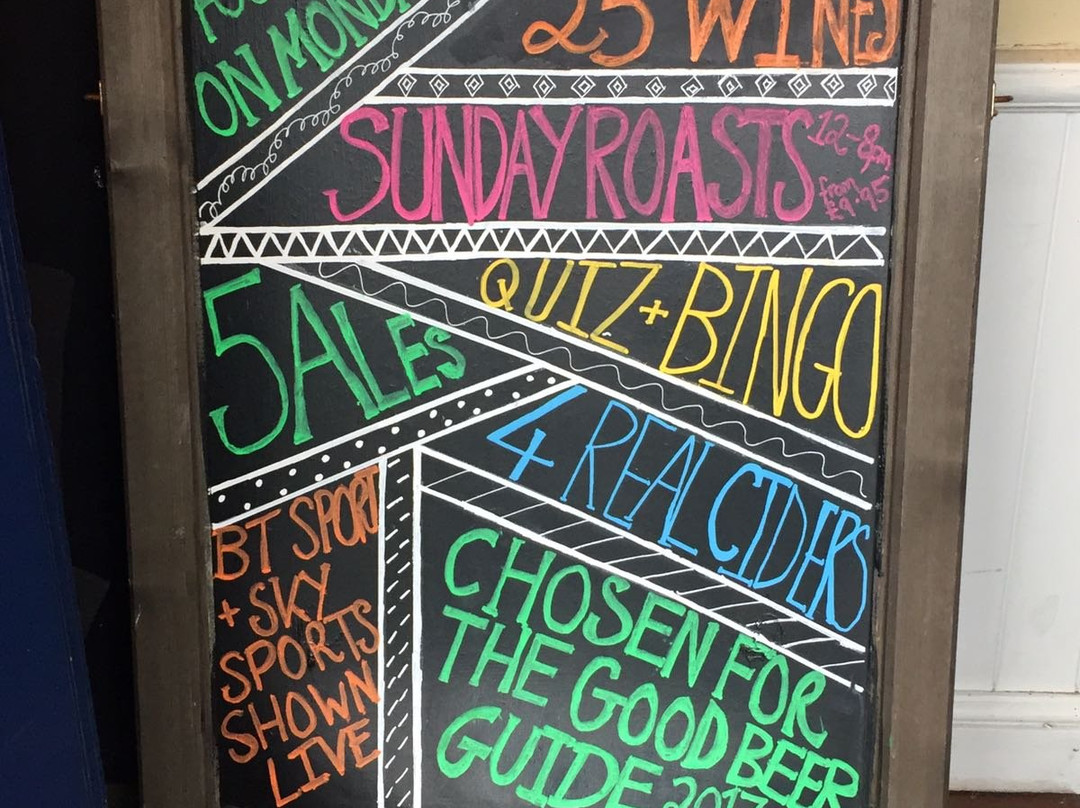 ON MONDAY
25 WINES
SUNDAY ROASTS
12-8pm
from
£9.95
5 ALES
QUIZ + BINGO
4 REAL CIDERS
BT SPORT
+ SKY
SPORTS
SHOWN
LIVE
CHOSEN FOR
THE GOOD BEER
GUIDE 2017